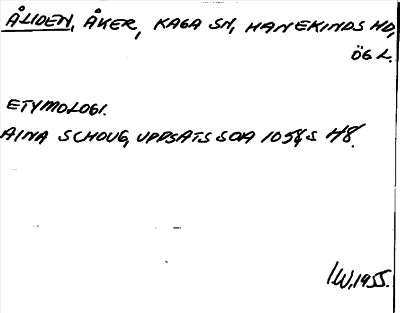 ÅLIDEN, ÅKER, KAGA SN, HANEKINDS HD,
ÖG L.
ETYMOLOGI.
AINA SCHOUG, UPPSATS SOA 1054, S 48.
I.W, 1955.